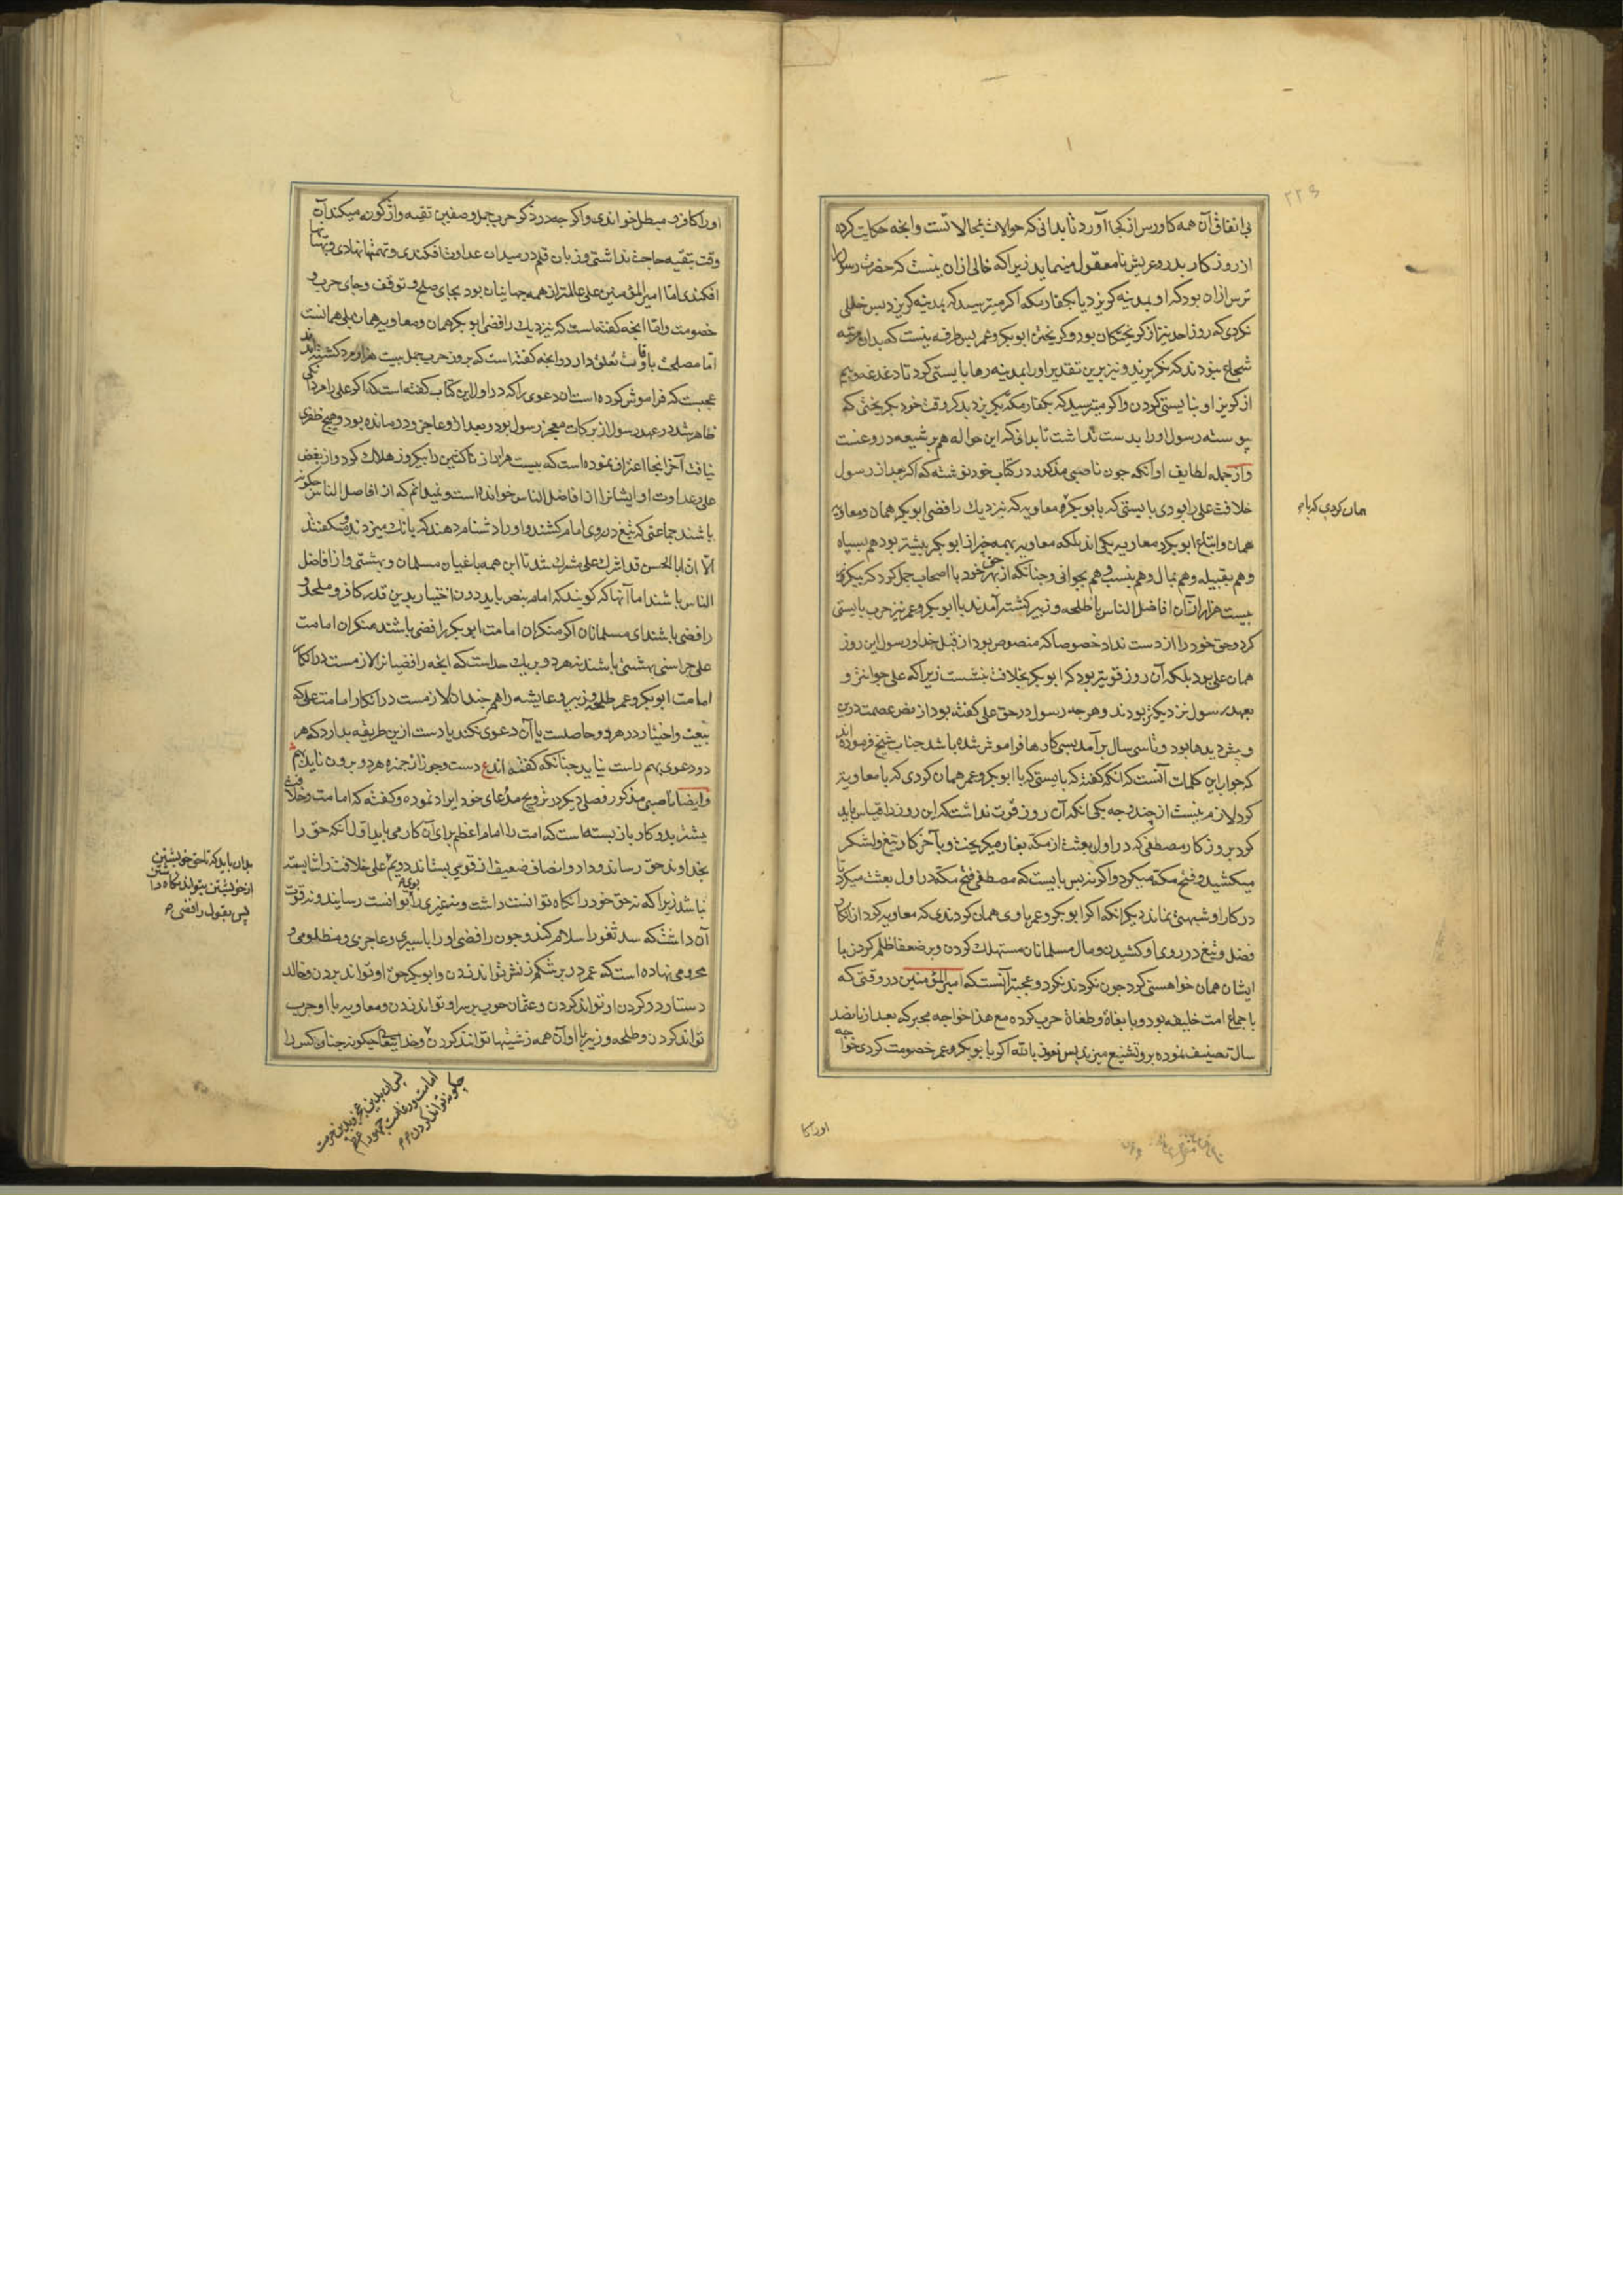 بی انفاق آن همه کاورس از کجا آورد تا بدانی که حوالات بمحالاتست و آنچه حکایت کرده
از روز کار بدر و عریش نامعقول مینماید زیرا که خالی ازان نیست که حضرت رسول را
ترس ازان بود که او بمدینه کریزد یا بکفار مکه اکر میترسید که بمدینه کریزد پس خللی
نکردی که روز احد نیز از کریختکان بود و کریختن ابوبکر و عمر بس طرفه نیست که بدان مرتبه
شجاع نبودند که نکریزند و نیز برین تقدیر او را بمدینه رها بایستی کرد تا دغدغه و بیم
از کریز او نبایستی کردن و اکر میترسید که بکفار مکه بکریزد بدکر وقت خود بکریختی که
پیوسته رسول او را بدست نداشت تا بدانی که این حواله هم بر شیعه دروغست
و از جمله لطایف او آنکه چون ناصبی مذکور در کتاب خود نوشته که اکر بعد از رسول
خلافت علی را بودی بایستی که با بوبکر و معاویه که نزدیك رافضی ابوبکر همان و معاویه
همان و اتباع ابوبکر و معاویه یکی اند بلکه معاویه بهمه چیز از ابوبکر بیشتر بود هم بسپاه
و هم بقبیله و هم بمال و هم بنسب و هم بجوانی و چنانکه از بهر حق خود با اصحاب جمل کرد که بیکروز
بیست هزار از آن افاضل الناس با طلحه و زبیر کشته آمدند با ابوبکر و عمر نیز حرب بایستی
کرد و حق خود را از دست نداد خصوصا که منصوص بود از قبل خدا و رسول این روز
همان علی بود بلکه آن روز قویتر بود که ابوبکر بخلافت بنشست زیرا که علی جوانتر و
بعهد رسول نزدیکتر بودند و هر چه رسول در حق علی کفته بود از نص عصمت درین
و پیش دیدها بود و تا سی سال برآمد بسی کارها فراموش شده باشد جناب شیخ فرموده اند
که جواب این کلمات آنست که آنکه کفته که بایستی که با ابوبکر و عمر همان کردی که با معاویه
کرد لازم نیست از چند وجه یکی آنکه آن روز قوت نداشت که این روز را قیاس باید
کرد بروز کار مصطفی که در اول بعثت از مکه بغار میکریخت و بآخر کار تیغ و لشکر
میکشید و فتح مکه میکرد و اکر نه بس بایست که مصطفی فتح مکه در اول بعثت میکرد تا
در کار او شبهتی نماند دیکر آنکه اکر ابوبکر و عمر با وی همان کردندی که معاویه کرد از انکار
فضل و تیغ در روی او کشیدن و مال مسلمانان مستهلك کردن و بر ضعفا ظلم کردن با
ایشان همان خواهستی کرد چون نکردند نکرد و عجبتر آنست که امیر المؤمنین در وقتی که
باجماع امت خلیفه بود و با بغاة و طغاة حرب کرده مع هذا خواجه مجبر که بعد از پانصد
سال تصنیف نموده برو تشنیع میزند پس نعوذ بالله اکر با بوبکر و عمر خصومت کردی خواجه
همان کردی که با م
او را کا
او را کافر و مبطل خواندی و اکر چه در ذکر حرب جمل و صفین تقیه واژکونه میکند آن
وقت بتقیه حاجت نداشتی و زبان قلم در میدان عداوت افکندی و تهمتها نهادی و بهتانها
افکندی اما امیر المؤمنین علی عالمتر از همه جهانیان بود بجای صلح و توقف و جای حرب و
خصومت و اما آنچه کفته است که نزدیك رافضی ابوبکر همان و معاویه همان بلی همانست
اما مصلحت باوقات تعلق دارد و آنچه کفته است که بروز حرب جمل بیست هزار مرد کشته اند
عجبست که فراموش کرده است آن دعوی را که در اول این کتاب کفته است که اکر علی را مردانکی
ظاهر شد در عهد رسول از برکات معجز رسول بود و بعد ازو عاجز و درمانده بود و هیچ ظفری
نیافت آخر اینجا اعتراف نموده است که بیست هزار از ناکثین را بیکروز هلاك کرد و از بغض
علی و عداوت او ایشانرا از افاضل الناس خوانده است و نمیدانم که از افاضل الناس چکونه
باشند جماعتی که تیغ در روی امام کشند و او را دشنام دهند که بانك میزدند و میکفتند
الا ان ابا الحسن قد اشرك علی شرك شد تا این همه باغیان مسلمان و بهشتی و از افاضل
الناس باشند اما آنها که کویند که امام بنص باید دون اختیار بدین قدر کافر و ملحد و
رافضی باشند ای مسلمانان اکر منکران امامت ابوبکر رافضی باشند منکران امامت
علی چرا سنی بهشتی باشند نه هر دو بر یك حد است که آنچه رافضیانرا لازمست در انکار
امامت ابوبکر و عمر طلحه و زبیر و عایشه را هم چندان لازمست در انکار امامت علی که
بیعت و اختیار در هر دو حاصلست یا آن دعوی نکند یا دست ازین طریقه بدارد که هر
دو دعوی بهم راست نیاید چنانکه کفته اند ع دست و جوز از خمره هر دو برون ناید بهم
و ایضا ناصبی مذکور فصلی دیکر در ترویج مدعای خود ایراد نموده و کفته که امامت و خلافت
بیشتر بدو کار بازبسته است که امت را امام اعظم برای آن کار می باید اول آنکه حق را
بخداوند حق رساند و داد و انصاف ضعیف از قوی بستاند دویم علی خلافت را شایسته
نباشد زیرا که نه حق خود را نکاه توانست داشت و نه غیری را بوی توانست رسانید و نه قوت
آن داشت که سد ثغور اسلام کند و چون رافضی او را باسیری و عاجزی و مظلومی و
محرومی نهاده است که عمر در بر شکم زنش تواند زدن و ابوبکر حق او تواند بردن و خالد
دستار در کردن او تواند کردن و عثمان چوب بر سر او تواند زدن و معاویه با او حرب
تواند کردن و طلحه و زبیر با او آن همه زشتیها توانند کردن و خدایتعالی چکونه چنان کس را
بدان باید که تا حق خویشتن
از خویشتن بتواند نکاه داشتن
پس بقول رافضی م